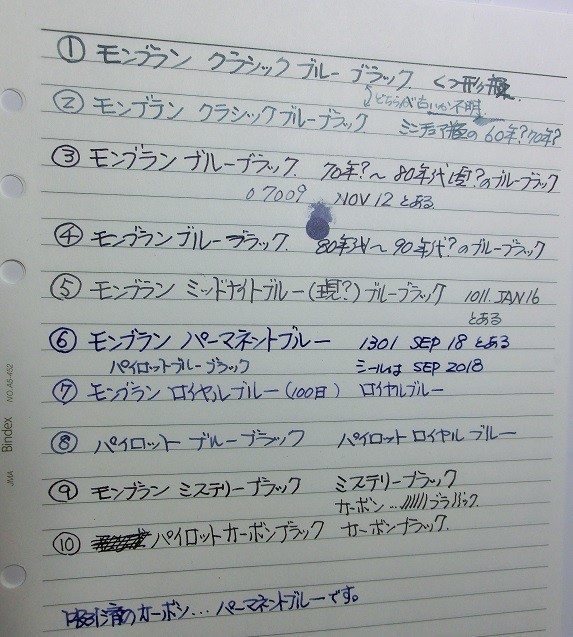 ① モンブラン クラシック ブルー ブラック くつ形瓶.
どちらが古いか不明
② モンブラン クラシックブルーブラック ミニチュア瓶の60年?70年?
③ モンブラン ブルーブラック. 70年?～80年代頃?のブルーブラック
07009 NOV 12 とある
④ モンブラン ブルーブラック. 80年代～90年代?のブルーブラック
⑤ モンブラン ミッドナイトブルー(現?)ブルーブラック 1011. JAN 16
とある
⑥ モンブラン パーマネントブルー 1301 SEP 18 とある
パイロットブルーブラック シールは SEP 2018
⑦ モンブラン ロイヤルブルー(100日) ロイヤルブルー
⑧ パイロット ブルーブラック パイロット ロイヤル ブルー
⑨ モンブラン ミステリーブラック ミステリーブラック
カーボン... ブラック.
⑩ パイロットカーボンブラック カーボンブラック.
のカーボン...パーマネントブルーです。
JMA Bindex NO.A5-452